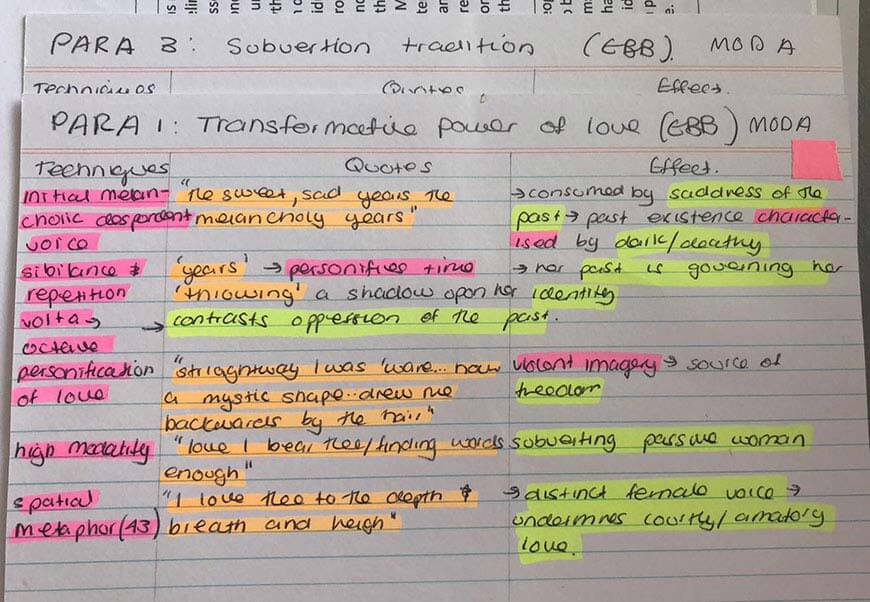 PARA 3: Subvertion tradition (EBB). MOD A
Techniques Quotes Effect.
PARA 1: Transformative power of love (EBB) MOD A
Techniques Quotes Effect.
initial melan- "The sweet, sad years the →consumed by saddness of the
cholic despondent melancholy years" past→ past existence characte-
voice ised by dark/deathy
sibilance & 'years' → personifies time → her past is governing her
repetition 'throwing' a shadow opon her identity
volta → → contrasts oppression of the past.
octave
personification "striaghtway I was 'ware... how violent imagery → source of
of love a mystic shape..drew me freedom
backwards by the hair"
high modality "love I bear thee/finding words subverting passive woman
enough"
spatial "I love thee to the depth & → distinct female voice →
metaphor (43) breath and heigh" undermines courtly/amatory
love.